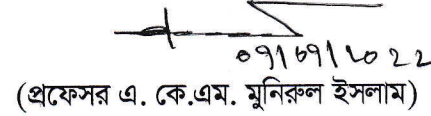 ০৭।০৭।২০২২
(প্রফেসর এ. কে.এম. মুনিরুল ইসলাম)